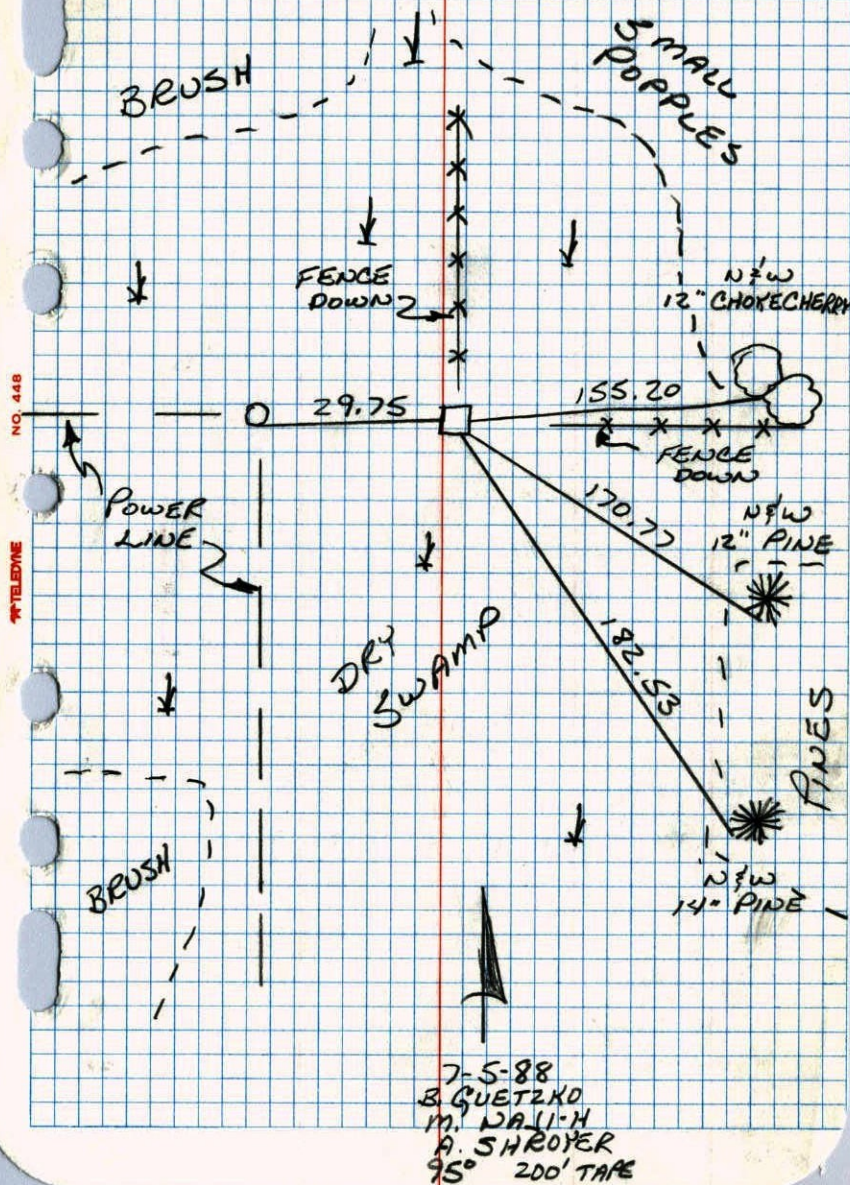 BRUSH
SMALL
POPPLES
FENCE
DOWN
N & W
12" CHOKECHERRY
NO. 448
29.75
155.20
FENCE
DOWN
POWER
LINE
170.77
N & W
12" PINE
TELEDYNE
DRY
SWAMP
182.53
PINES
BRUSH
N & W
14" PINE
7-5-88
B. GUETZKO
M.
A. SHROYER
95° 200' TAPE